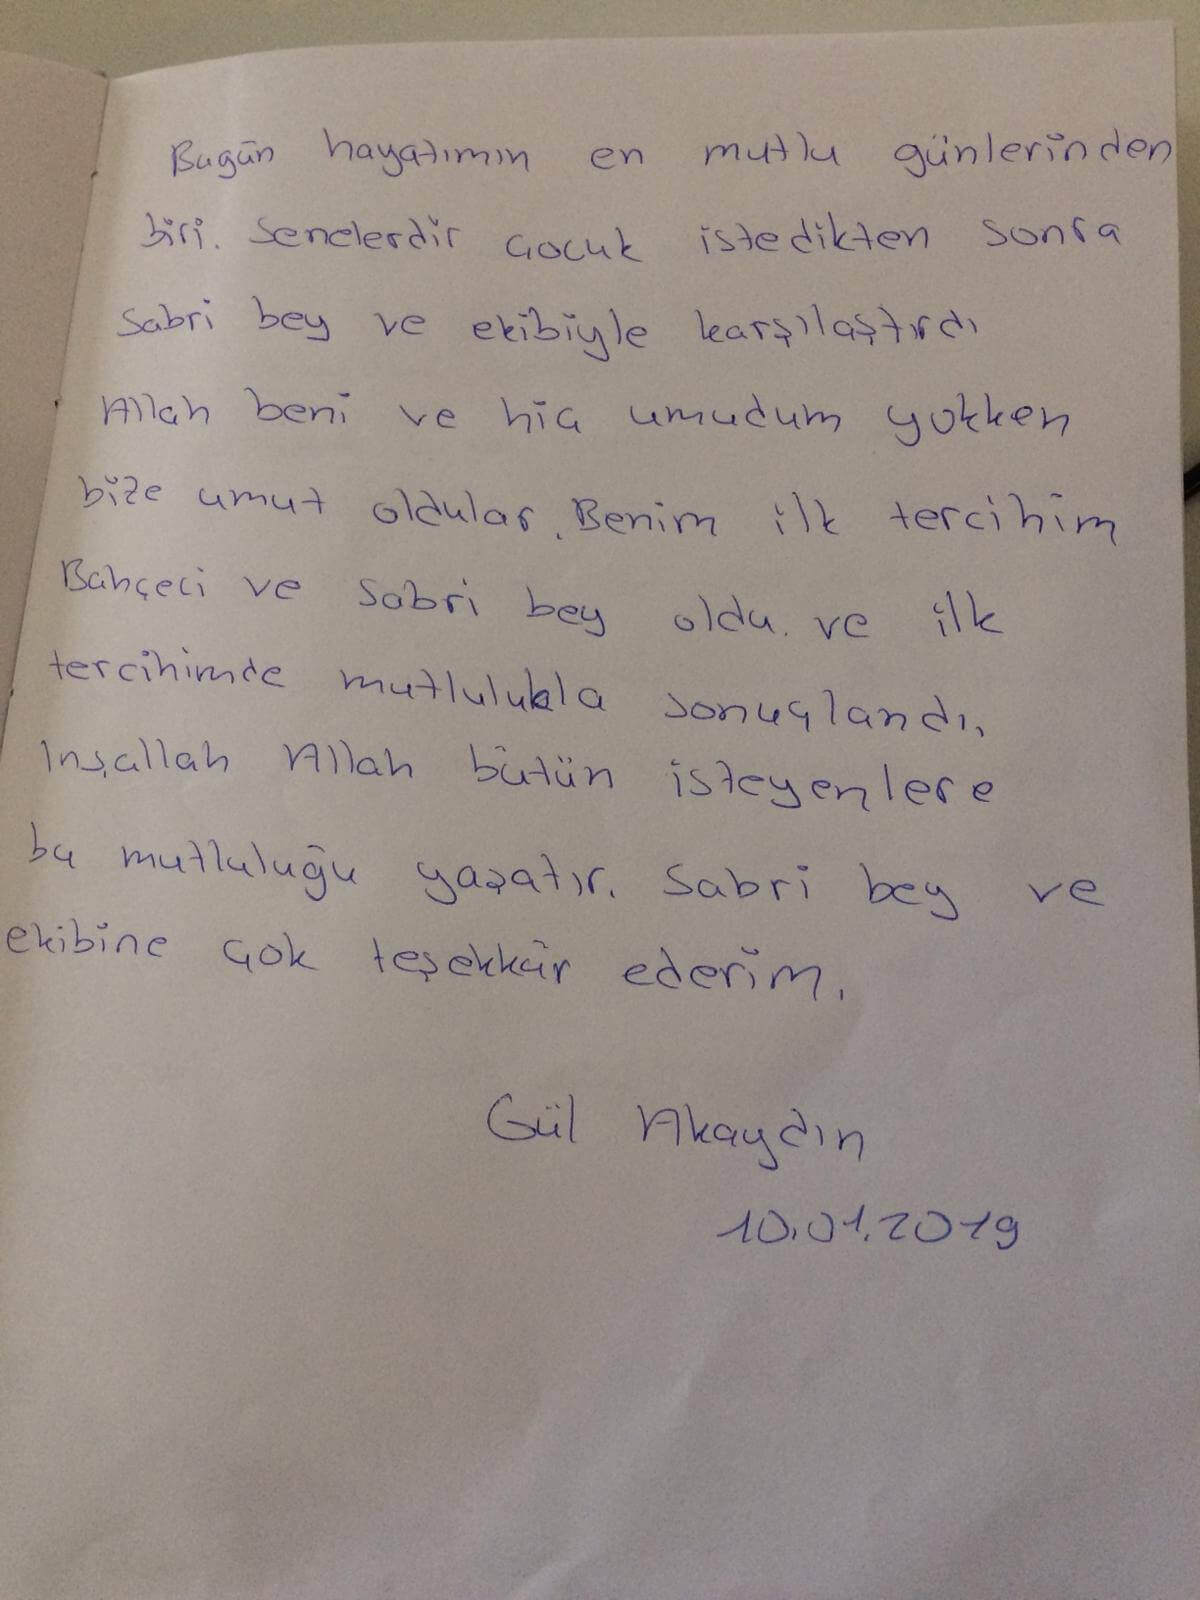 Bugün hayatımın en mutlu günlerinden
biri. Senelerdir çocuk istedikten sonra
Sabri bey ve ekibiyle karşılaştırdı
Allah beni ve hiç umudum yokken
bize umut oldular. Benim ilk tercihim
Bahçeci ve Sabri bey oldu. ve ilk
tercihimde mutlulukla sonuçlandı.
Inşallah Allah bütün isteyenlere
bu mutluluğu yaşatır. Sabri bey ve
ekibine çok teşekkür ederim.
Gül Akaydın
10.01.2019